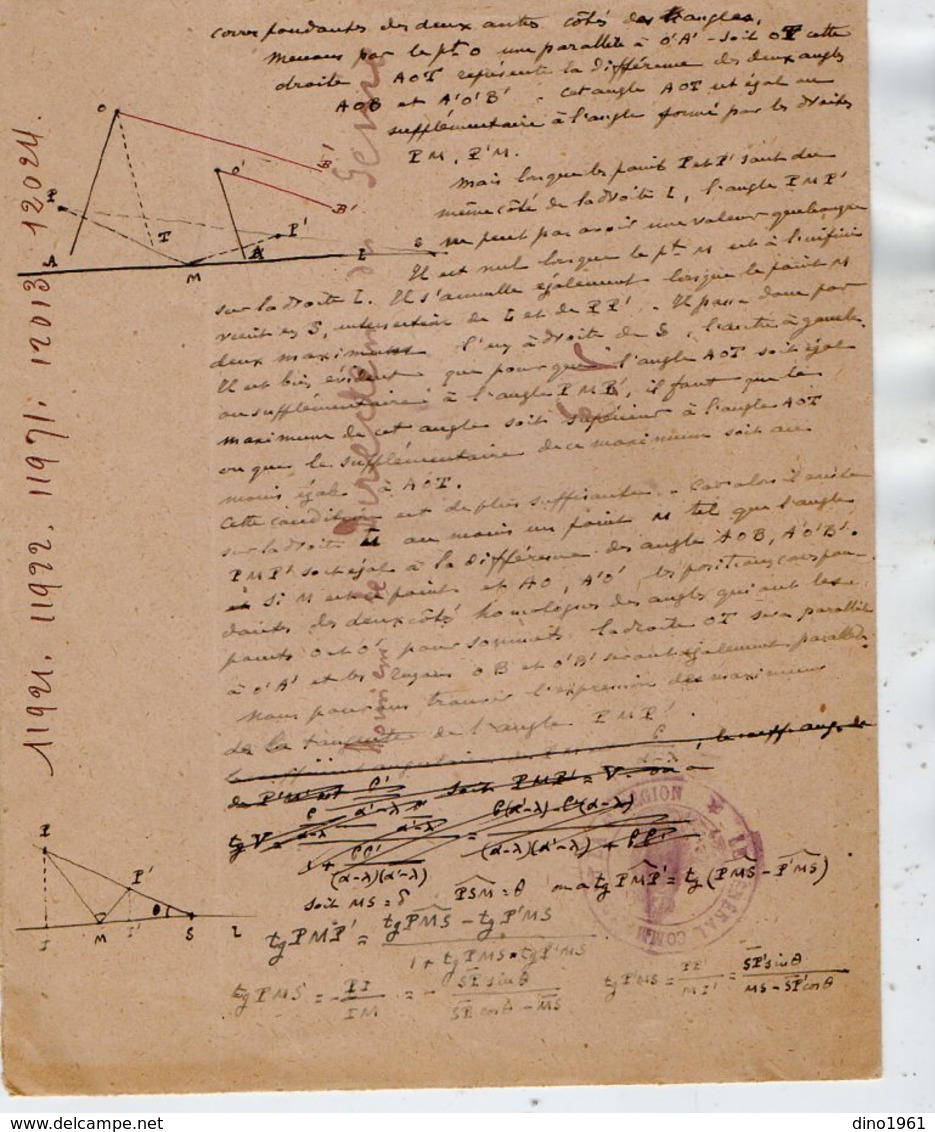 correspondantes des deux autres côtés des triangles.
Menons par le pt O une parallèle à O'A' - soit OT cette
droite AOT représente la différence des deux angles
AOB et A'O'B' - cet angle AOT est égal au
supplémentaire à l'angle formé par les droites
PM, P'M.
Mais lorsque les points P et P' sont du
même côté de la droite L, l'angle PMP'
ne peut pas avoir une valeur quelconque
Il est nul lorsque le pt M est à l'infini
sur la droite L. Il s'annulle également lorsque le point M
vient en S, intersection de L et de PP'. Il passe donc par
deux maximums l'un à droite de S, l'autre à gauche.
Il est bien évident que pour que l'angle AOT soit égal
ou supplémentaire à l'angle PMP', il faut que le
maximum de cet angle soit supérieur à l'angle AOT
ou que le supplémentaire de ce maximum soit au
moins égal à AOT.
Cette condition est de plus suffisante. Car alors il existe
sur la droite L au moins un point M tel que l'angle
PMP' soit égal à la différence des angles AOB, A'O'B'.
et si M est ce point et AO, A'O' les positions correspon-
dants des deux côtés homologues des angles qui ont les
points O et O' pour sommets la droite OT sera parallèle
à O'A' et les rayons OB et O'B' seront également parallèles.
Nous pouvons trouver l'expression des maximum
de la tangente de l'angle PMP'.
soit PMP' = V on a
tg V =
soit MS = δ PSM = θ on a tg PMP' = tg (PMS - P'MS)
tg PMP' = tg PMS - tg P'MS / 1 + tg PMS • tg P'MS
tg PMS = - PI / IM = - SP sin θ / SP cos θ - MS tg P'MS = P'I' / MI' = SP' sin θ / MS - SP' cos θ
O
O'
B'
B'
P
P'
T
S
A
A'
M
L
P
P'
θ
I
M
I'
S
L
11921. 11922. 11971. 12013. 12024.
LEGION
GENERAL COMM
dino1961